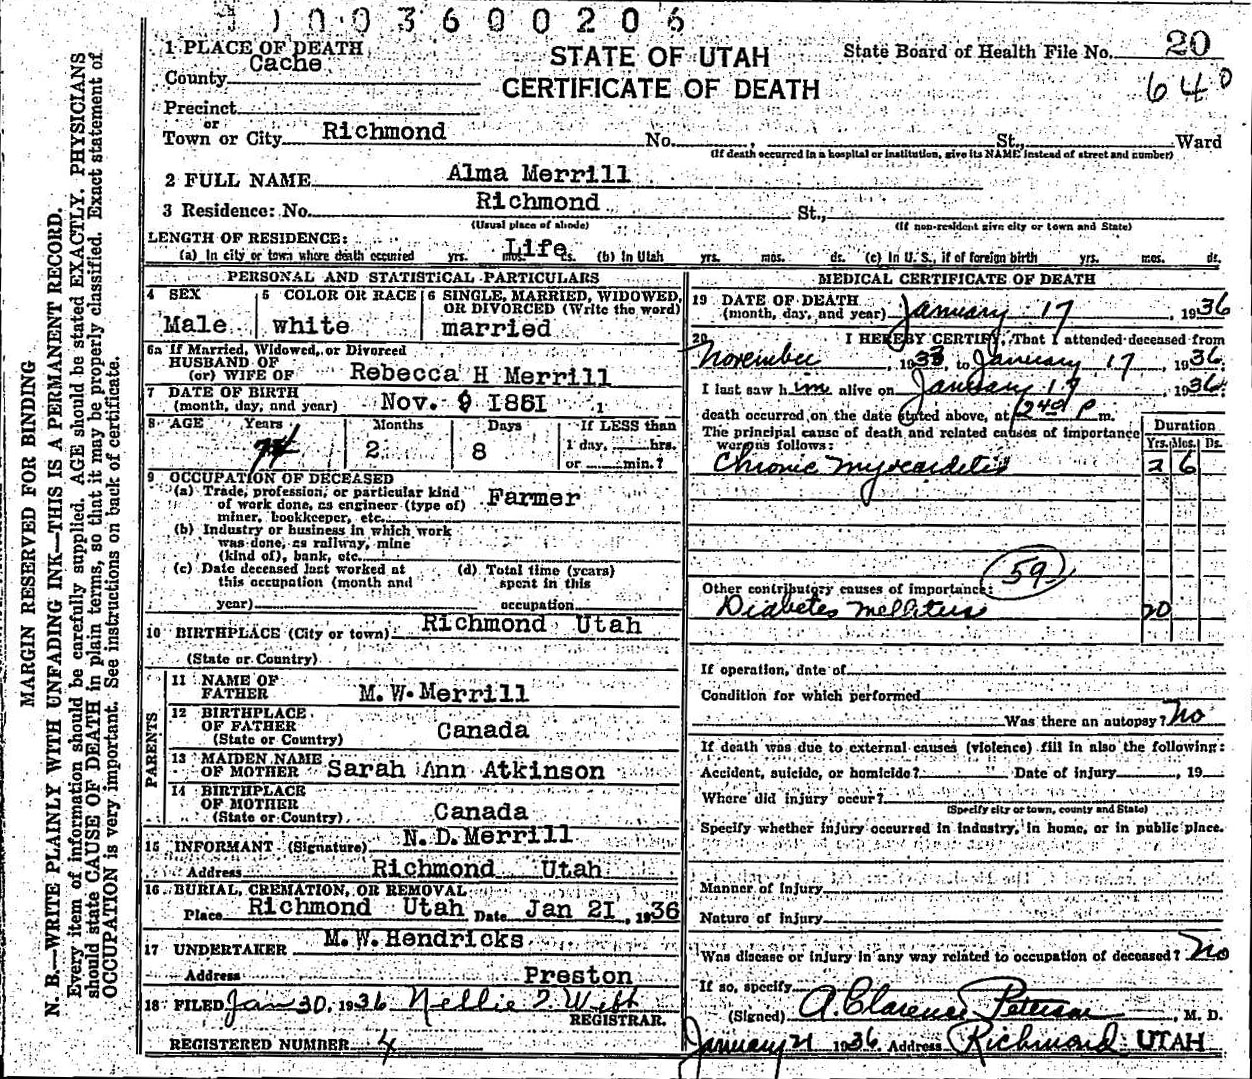 1003600206
1 PLACE OF DEATH
STATE OF UTAH
CERTIFICATE OF DEATH
State Board of Health File No. 20
640
County Cache
Precinct
or
Town or City Richmond No. St., Ward
(If death occurred in a hospital or institution, give its NAME instead of street and number)
2 FULL NAME Alma Merrill
3 Residence: No. Richmond St.,
(Usual place of abode) (If non-resident give city or town and State)
LENGTH OF RESIDENCE:
(a) In city or town where death occurred yrs. mos. Life ds. (b) In Utah yrs. mos. ds. (c) In U. S., if of foreign birth yrs. mos. ds.
PERSONAL AND STATISTICAL PARTICULARS
4 SEX Male
5 COLOR OR RACE white
6 SINGLE, MARRIED, WIDOWED, OR DIVORCED (Write the word) married
6a If Married, Widowed, or Divorced
HUSBAND OF
(or) WIFE OF Rebecca H Merrill
7 DATE OF BIRTH
(month, day, and year) Nov. 9 1861
8 AGE Years 74 Months 2 Days 8 If LESS than
1 day, hrs.
or min.?
9 OCCUPATION OF DECEASED
(a) Trade, profession, or particular kind
of work done, as engineer (type of)
miner, bookkeeper, etc. Farmer
(b) Industry or business in which work
was done, as railway, mine
(kind of), bank, etc.
(c) Date deceased last worked at
this occupation (month and
year)
(d) Total time (years)
spent in this
occupation
10 BIRTHPLACE (City or town) Richmond Utah
(State or Country)
PARENTS
11 NAME OF
FATHER M. W. Merrill
12 BIRTHPLACE
OF FATHER
(State or Country) Canada
13 MAIDEN NAME
OF MOTHER Sarah Ann Atkinson
14 BIRTHPLACE
OF MOTHER
(State or Country) Canada
15 INFORMANT (Signature) N. D. Merrill
Address Richmond Utah
16 BURIAL, CREMATION, OR REMOVAL
Place Richmond Utah Date Jan 21, 1936
17 UNDERTAKER M. W. Hendricks
Address Preston
18 FILED Jan 30, 1936 Nellie
REGISTRAR.
REGISTERED NUMBER 4
MEDICAL CERTIFICATE OF DEATH
19 DATE OF DEATH
(month, day, and year) January 17, 1936
20 I HEREBY CERTIFY, That I attended deceased from
November, 1933, to January 17, 1936.
I last saw him alive on January 17, 1936;
death occurred on the date stated above, at 1240 P m.
The principal cause of death and related causes of importance
were as follows:
Duration
Yrs. Mos. Ds.
Chronic myocardetis 2 6
59
Other contributory causes of importance:
Diabetes mellitus 20
If operation, date of
Condition for which performed
Was there an autopsy? no
If death was due to external causes (violence) fill in also the following:
Accident, suicide, or homicide? Date of injury , 19
Where did injury occur?
(Specify city or town, county and State)
Specify whether injury occurred in industry, in home, or in public place.
Manner of Injury
Nature of injury
Was disease or injury in any way related to occupation of deceased? No
If so, specify
(Signed) A. Clarence Peterson, M. D.
January 21 1936. Address Richmond UTAH
MARGIN RESERVED FOR BINDING
N. B.—WRITE PLAINLY WITH UNFADING INK—THIS IS A PERMANENT RECORD.
Every item of information should be carefully supplied. AGE should be stated EXACTLY. PHYSICIANS
should state CAUSE OF DEATH in plain terms, so that it may be properly classified. Exact statement of
OCCUPATION is very important. See instructions on back of certificate.